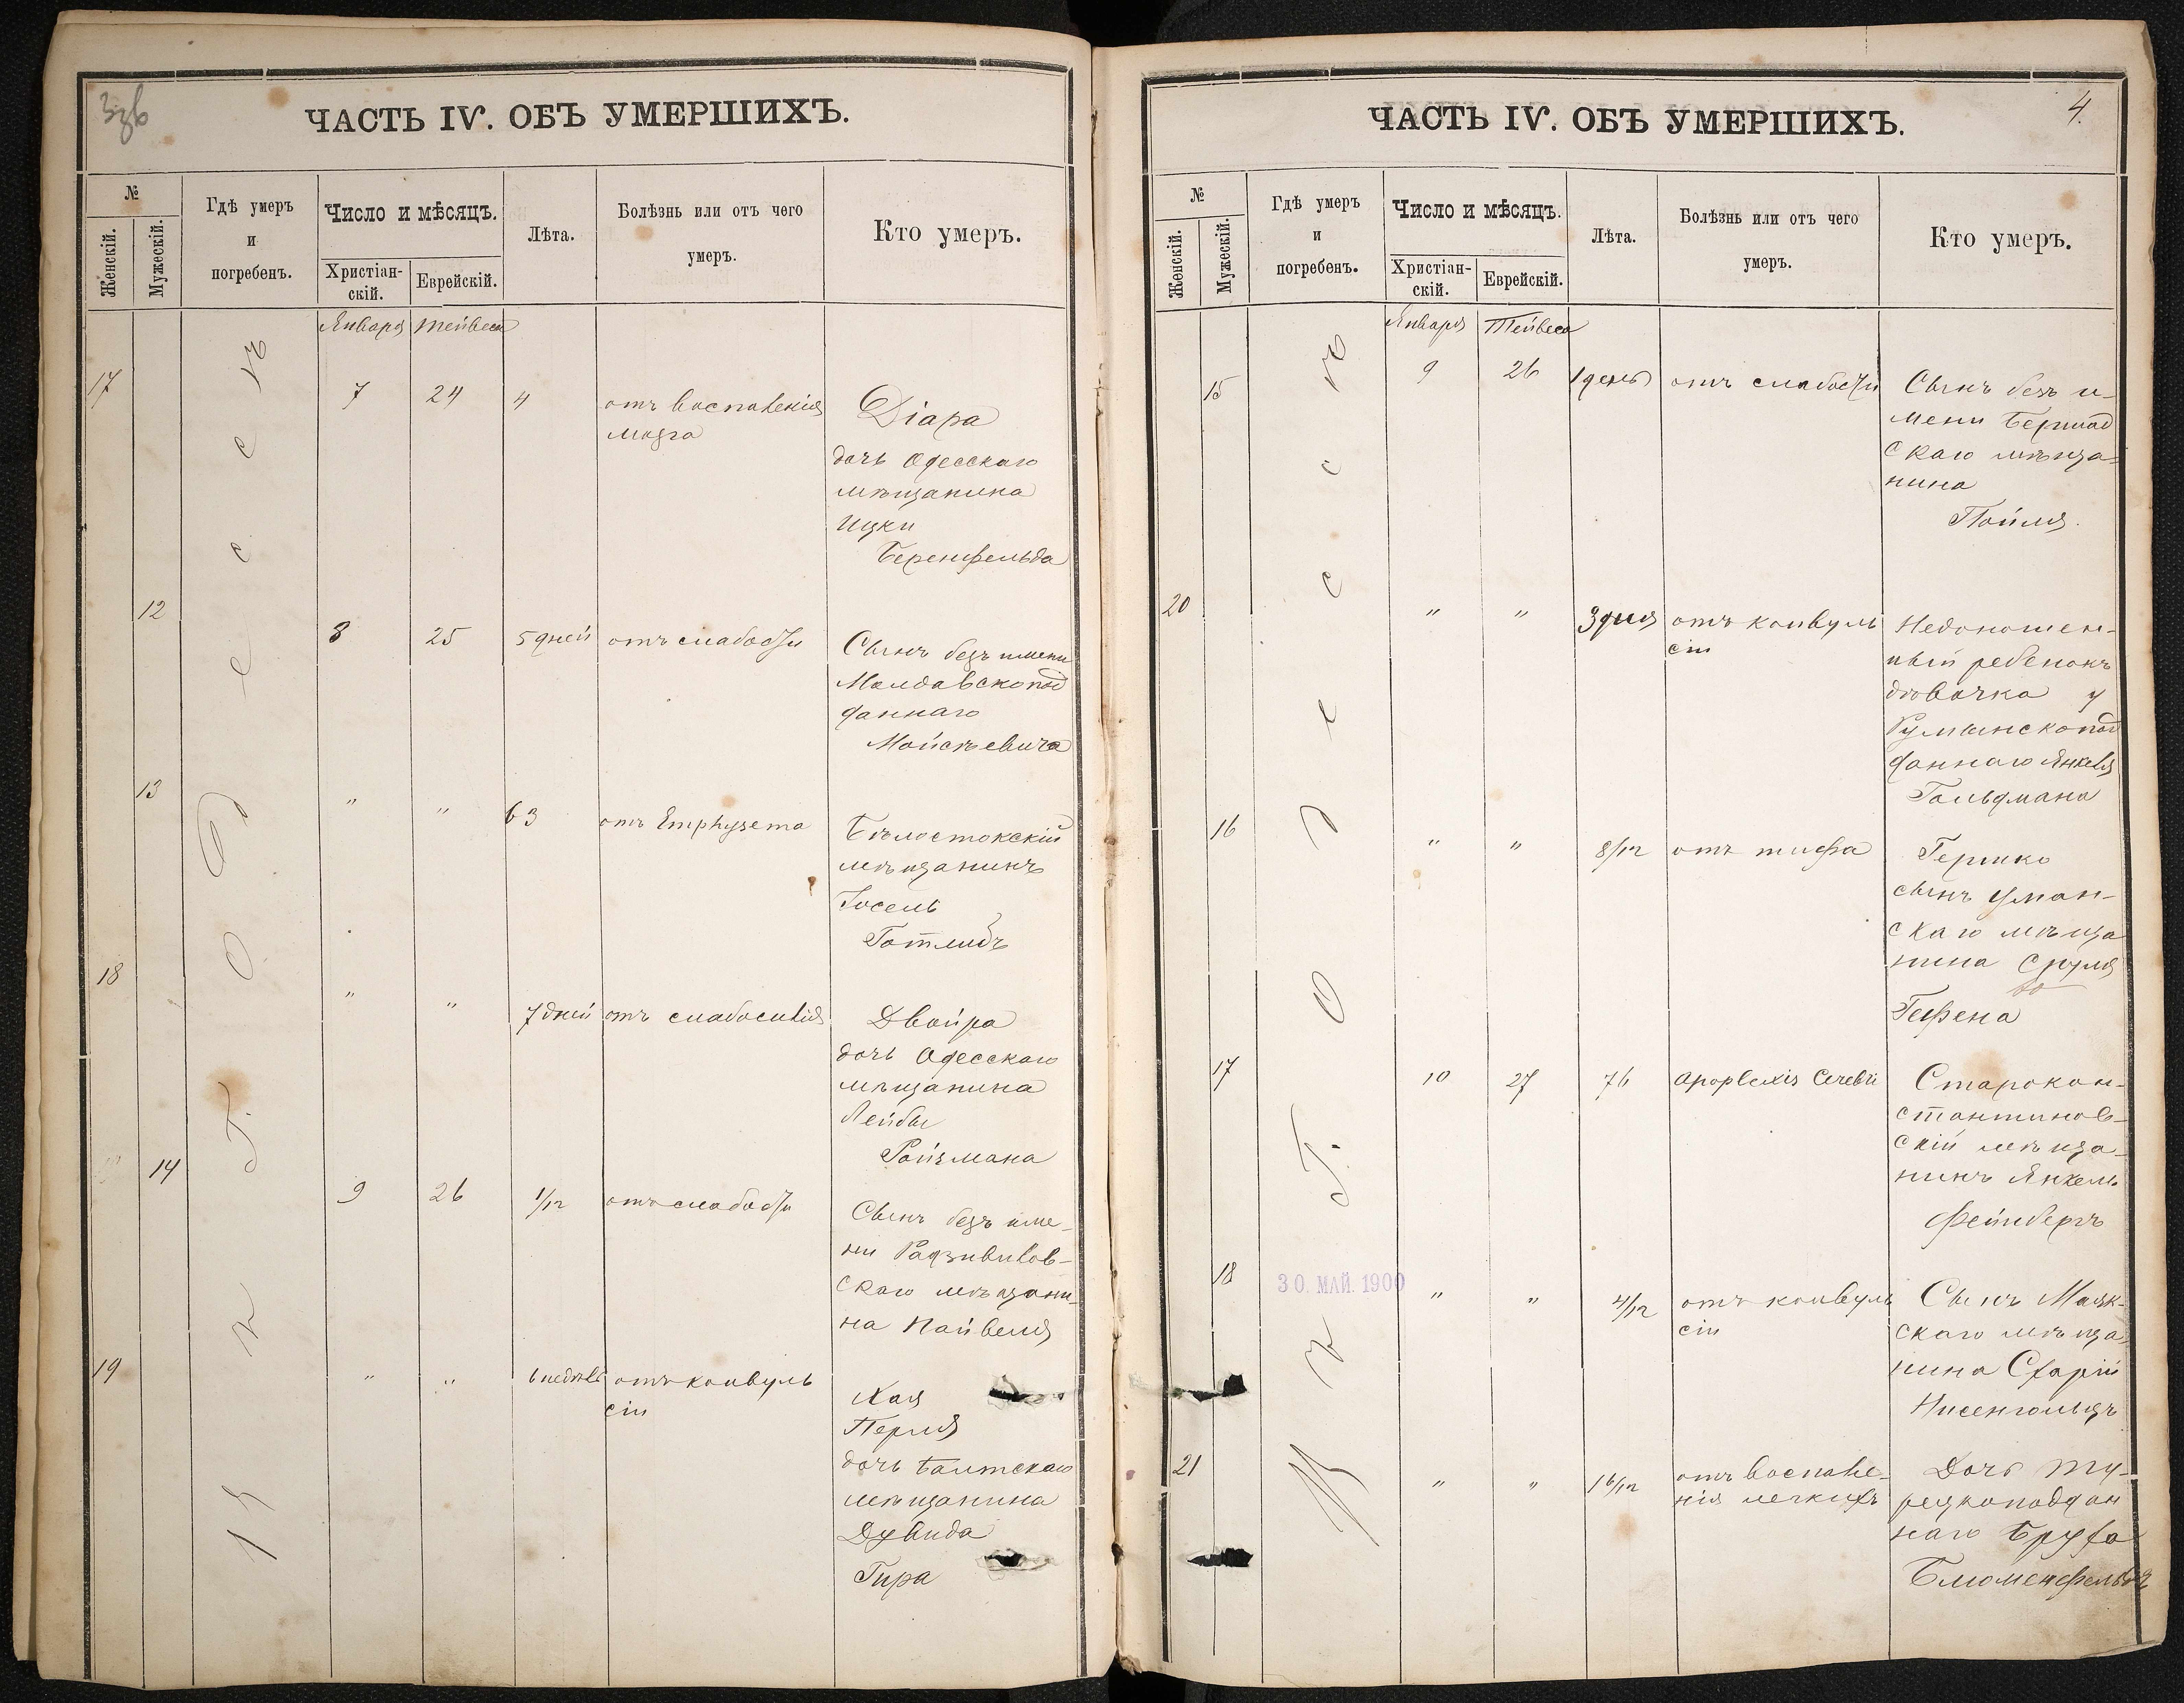 ЧАСТЬ IV. ОБЪ УМЕРШИХЪ.
№
Женскій.
Мужескій.
Гдѣ умеръ
и
погребенъ.
Число и мѣсяцъ.
Христіан-
скій.
Еврейскій.
Лѣта.
Болѣзнь или отъ чего
умеръ.
Кто умеръ.
Января Тейвеса
Въ г. Одессѣ
17 7 24 4 отъ воспаленія
мозга
дочь Одесскаго
мѣщанина
Ицки
Беренфельда
12 8 25 5 дней отъ слабости
Сынъ безъ имени
Молдавскопод
даннаго
Мойсѣевича
13 " " 63 отъ Emphysema
Бѣлостокскій
мѣщанинъ
Іосель
Готлибъ
18 " " 7 дней отъ слабосилія
Двойра
дочь Одесскаго
мѣщанина
Лейбы
Ройзмана
14 9 26 1/12 отъ слабости
Сынъ безъ име-
ни Радзивилов-
скаго мѣщани-
на Пайвеля
19 " " 6 недѣль отъ конвуль
сіи
Хая
Перля
дочь Балтскаго
мѣщанина
Дувида
Гира
ЧАСТЬ IV. ОБЪ УМЕРШИХЪ.
4.
№
Женскій.
Мужескій.
Гдѣ умеръ
и
погребенъ.
Число и мѣсяцъ.
Христіан-
скій.
Еврейскій.
Лѣта.
Болѣзнь или отъ чего
умеръ.
Кто умеръ.
Января Тейвеса
Въ г. Одессѣ
15 9 26 1 день отъ слабости
Сынъ безъ и-
мени Бершад
скаго мѣща-
нина
Пойля.
20 " " 3 дня отъ конвуль
сіи
Недоношен-
ный ребенокъ
дѣвочка у
Румынскопод
даннаго Янкеля
Гольдмана
16 " " 8/12 отъ тифа
Гершко
сынъ Уман-
скаго мѣща
нина Сруля
Гефена
17 10 27 76 Apoplexis Cerebri
Старокон-
стантинов-
скій мѣща-
нинъ Янкель
Фейнбергъ
18 30. МАЙ. 1900 " " 4/12 отъ конвуль
сіи
Сынъ Маяк-
скаго мѣща
нина
Нисенгольцъ
21 " " 16/12 отъ воспале-
нія легкихъ
Дочь Ту-
рецкоподдан
наго Бруха
Блюменфельдъ